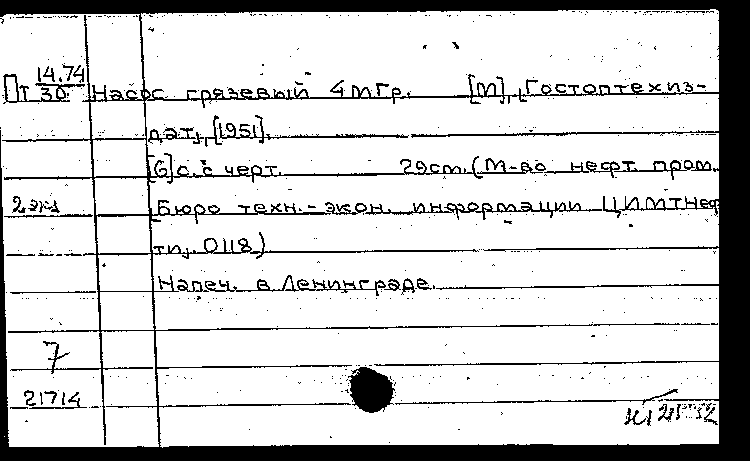 Пт 14.74/30 Насос грязевый 4мГр. [М], Гостоптехиз-
дат, [1951].
[6] с. с черт. 29см. (М-во нефт. пром.
2 экз Бюро техн.-экон. информации ЦИМТНеф
ти. 0118)
Напеч. в Ленинграде.
7
21714